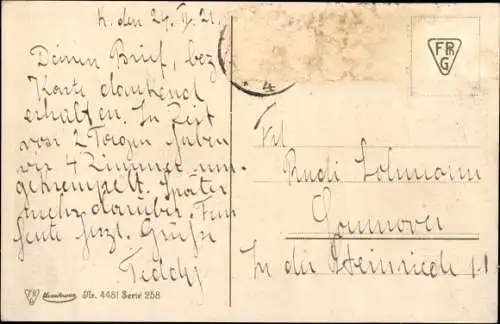 K. den 29. V. 21.
Deinen Brief, bez.
Karte dankend
erhalten. In Zeit
von 2 Tagen haben
wir 4 Zimmer um-
gekrempelt. Später
mehr darüber. Für
heute herzl. Grüße
Teddy
Frl.
Rudi Lohmann
Hannover
In der Steinriede 11
FRG
4
Nr. 4481 Serie 258